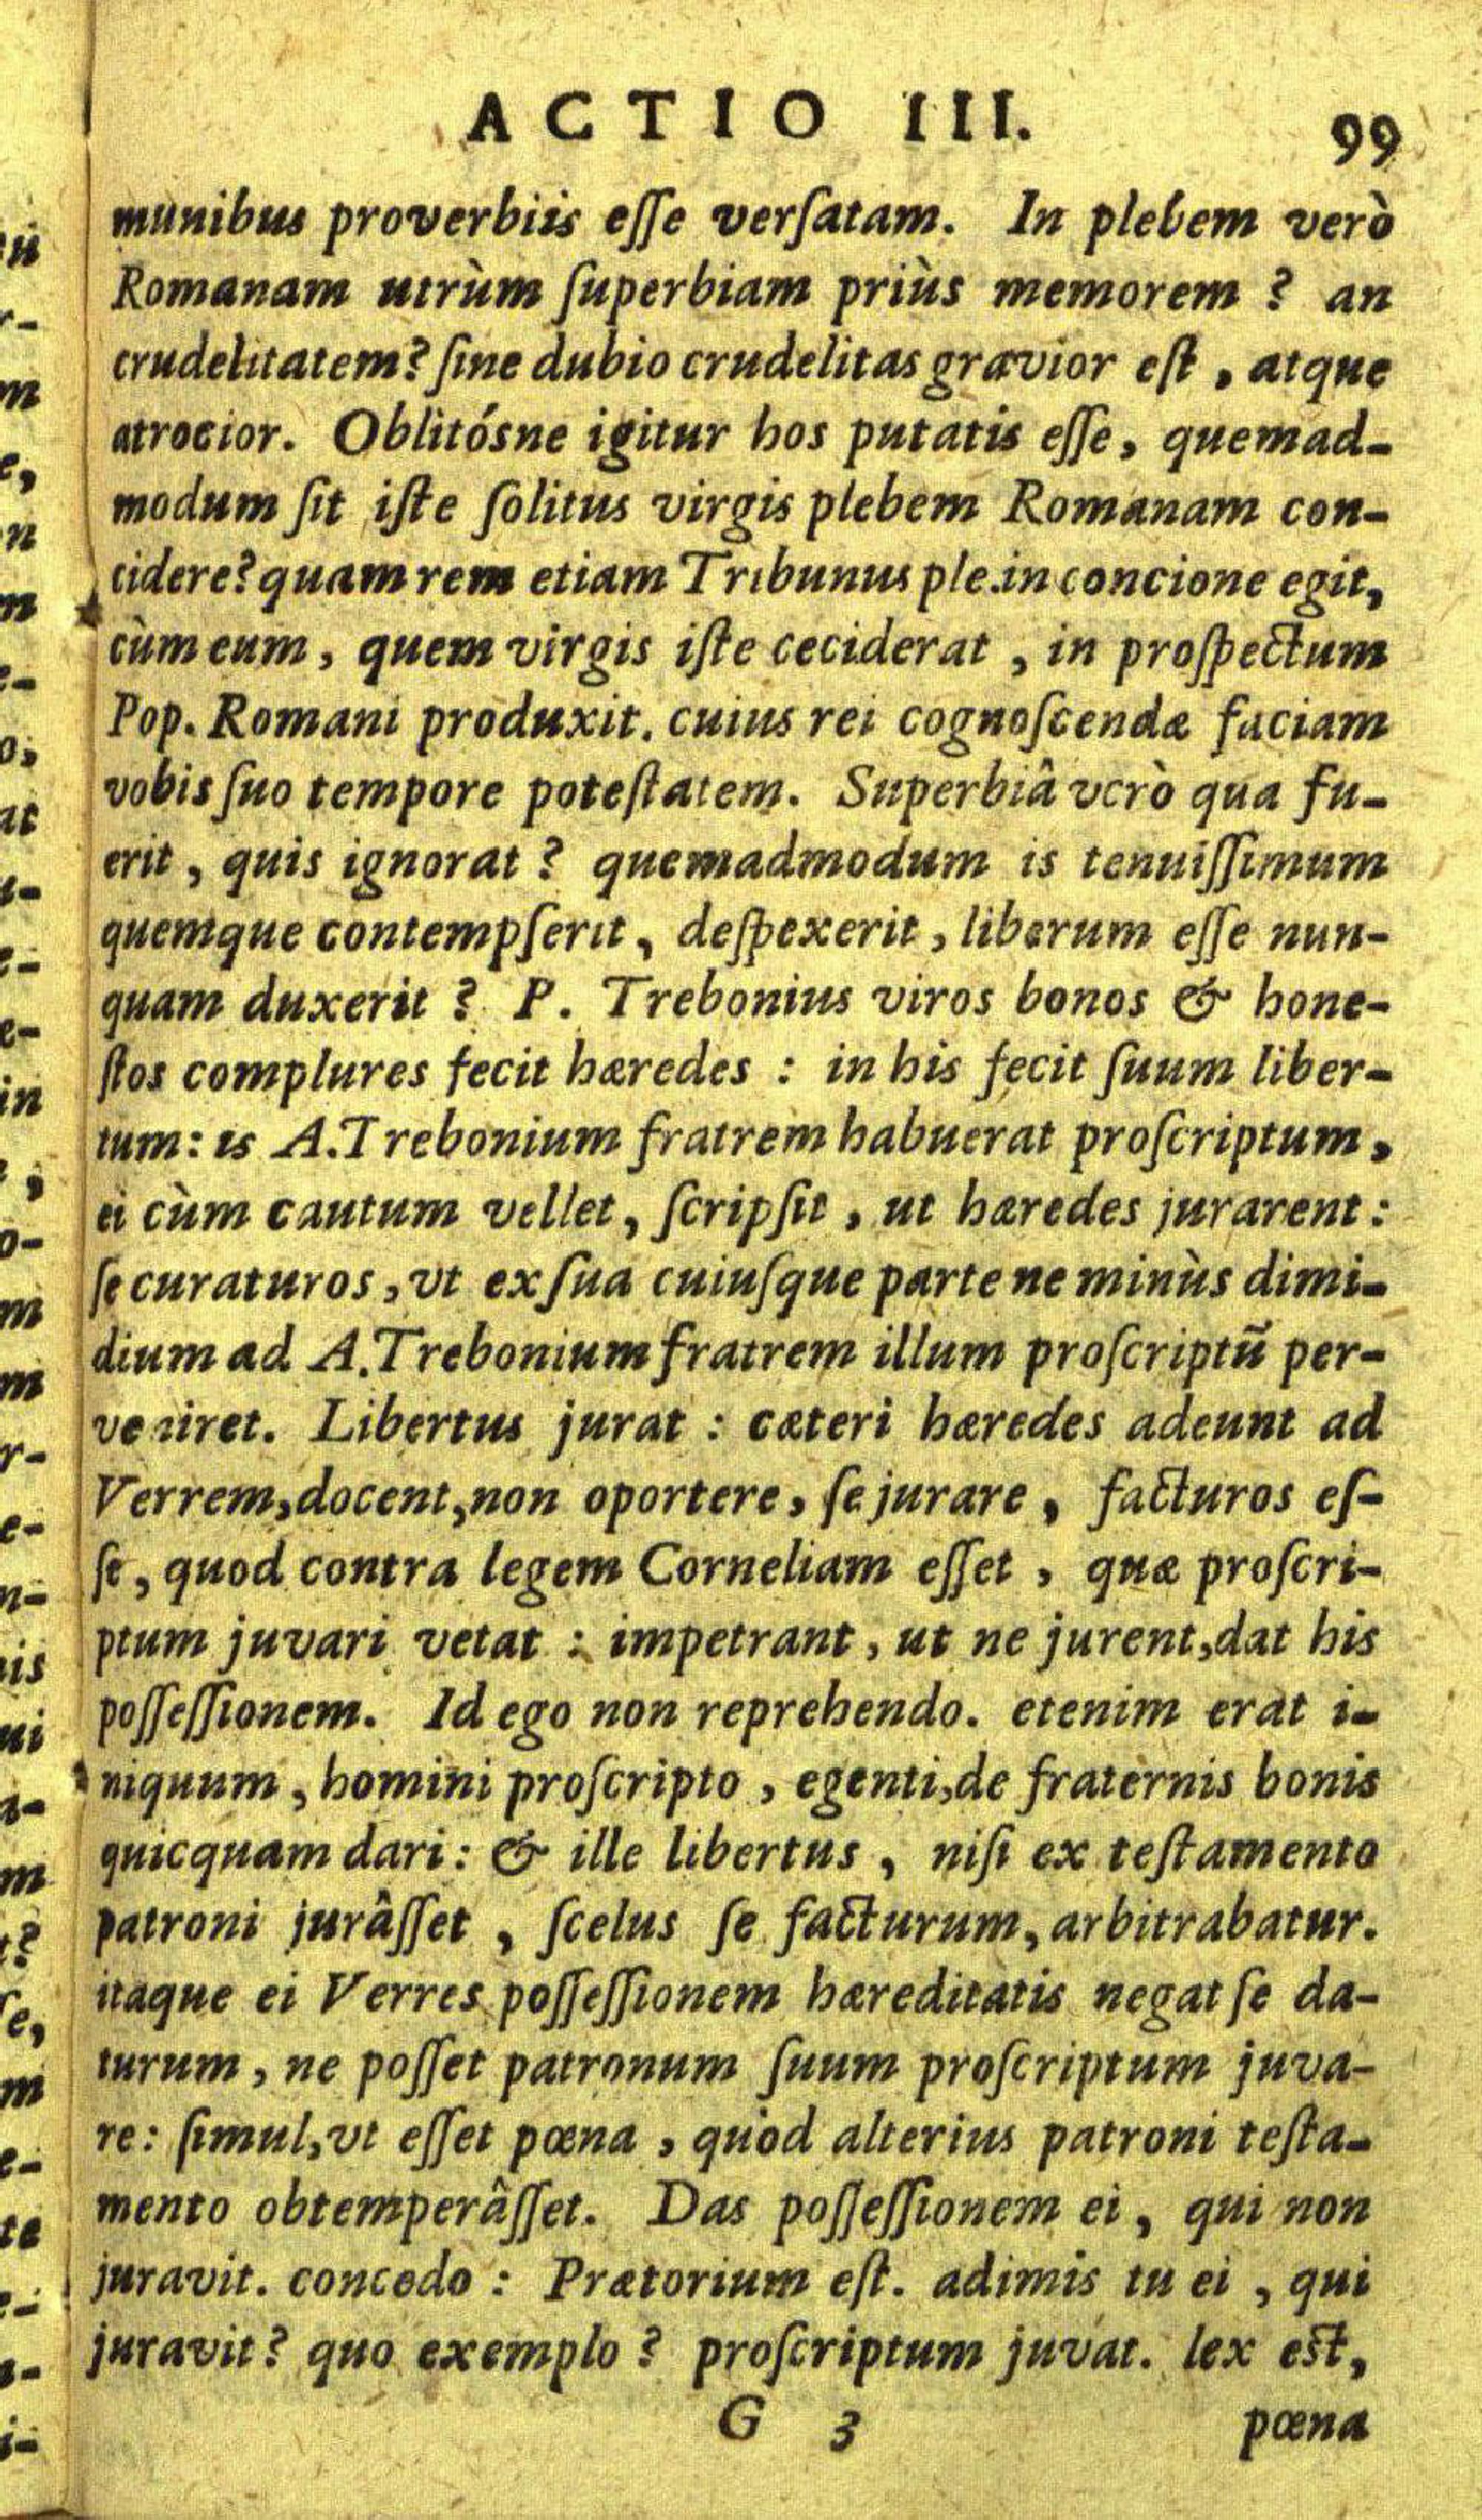 ACTIO III. 99
munibus proverbiis eſſe verſatam. In plebem verò
Romanam utrùm ſuperbiam priùs memorem ? an
crudelitatem? ſine dubio crudelitas gravior eſt , atque
atrocior. Oblitósne igitur hos putatis eſſe, quemad-
modum ſit iſte ſolitus virgis plebem Romanam con-
cidere? quam rem etiam Tribunus ple. in concione egit,
cùm eum, quem virgis iſte ceciderat , in proſpectum
Pop. Romani produxit. cuius rei cognoſcendæ faciam
vobis ſuo tempore poteſtatem. Superbiâ verò qua fu-
erit , quis ignorat ? quemadmodum is tenuiſſimum
quemque contempſerit, deſpexerit, liberum eſſe nun-
quam duxerit ? P. Trebonius viros bonos & hone-
ſtos complures fecit hæredes : in his fecit ſuum liber-
tum: is A. Trebonium fratrem habuerat proſcriptum,
ei cùm cautum vellet, ſcripſit, ut hæredes jurarent:
ſe curaturos, vt ex ſua cuiuſque parte ne minùs dimi-
dium ad A. Trebonium fratrem illum proſcriptũ per-
veniret. Libertus jurat : cæteri hæredes adeunt ad
Verrem, docent, non oportere, ſe jurare, facturos eſ-
ſe, quod contra legem Corneliam eſſet , quæ proſcri-
ptum juvari vetat : impetrant, ut ne jurent, dat his
poſſeſſionem. Id ego non reprehendo. etenim erat i-
niquum, homini proſcripto, egenti, de fraternis bonis
quicquam dari: & ille libertus, niſi ex teſtamento
patroni jurâſſet , ſcelus ſe facturum, arbitrabatur.
itaque ei Verres poſſeſſionem hæreditatis negat ſe da-
turum, ne poſſet patronum ſuum proſcriptum juva-
re: ſimul, vt eſſet pœna , quòd alterius patroni teſta-
mento obtemperâſſet. Das poſſeſſionem ei, qui non
juravit. concedo : Prætorium eſt. adimis tu ei , qui
juravit? quo exemplo ? proſcriptum juvat. lex eſt,
G 3 pœna